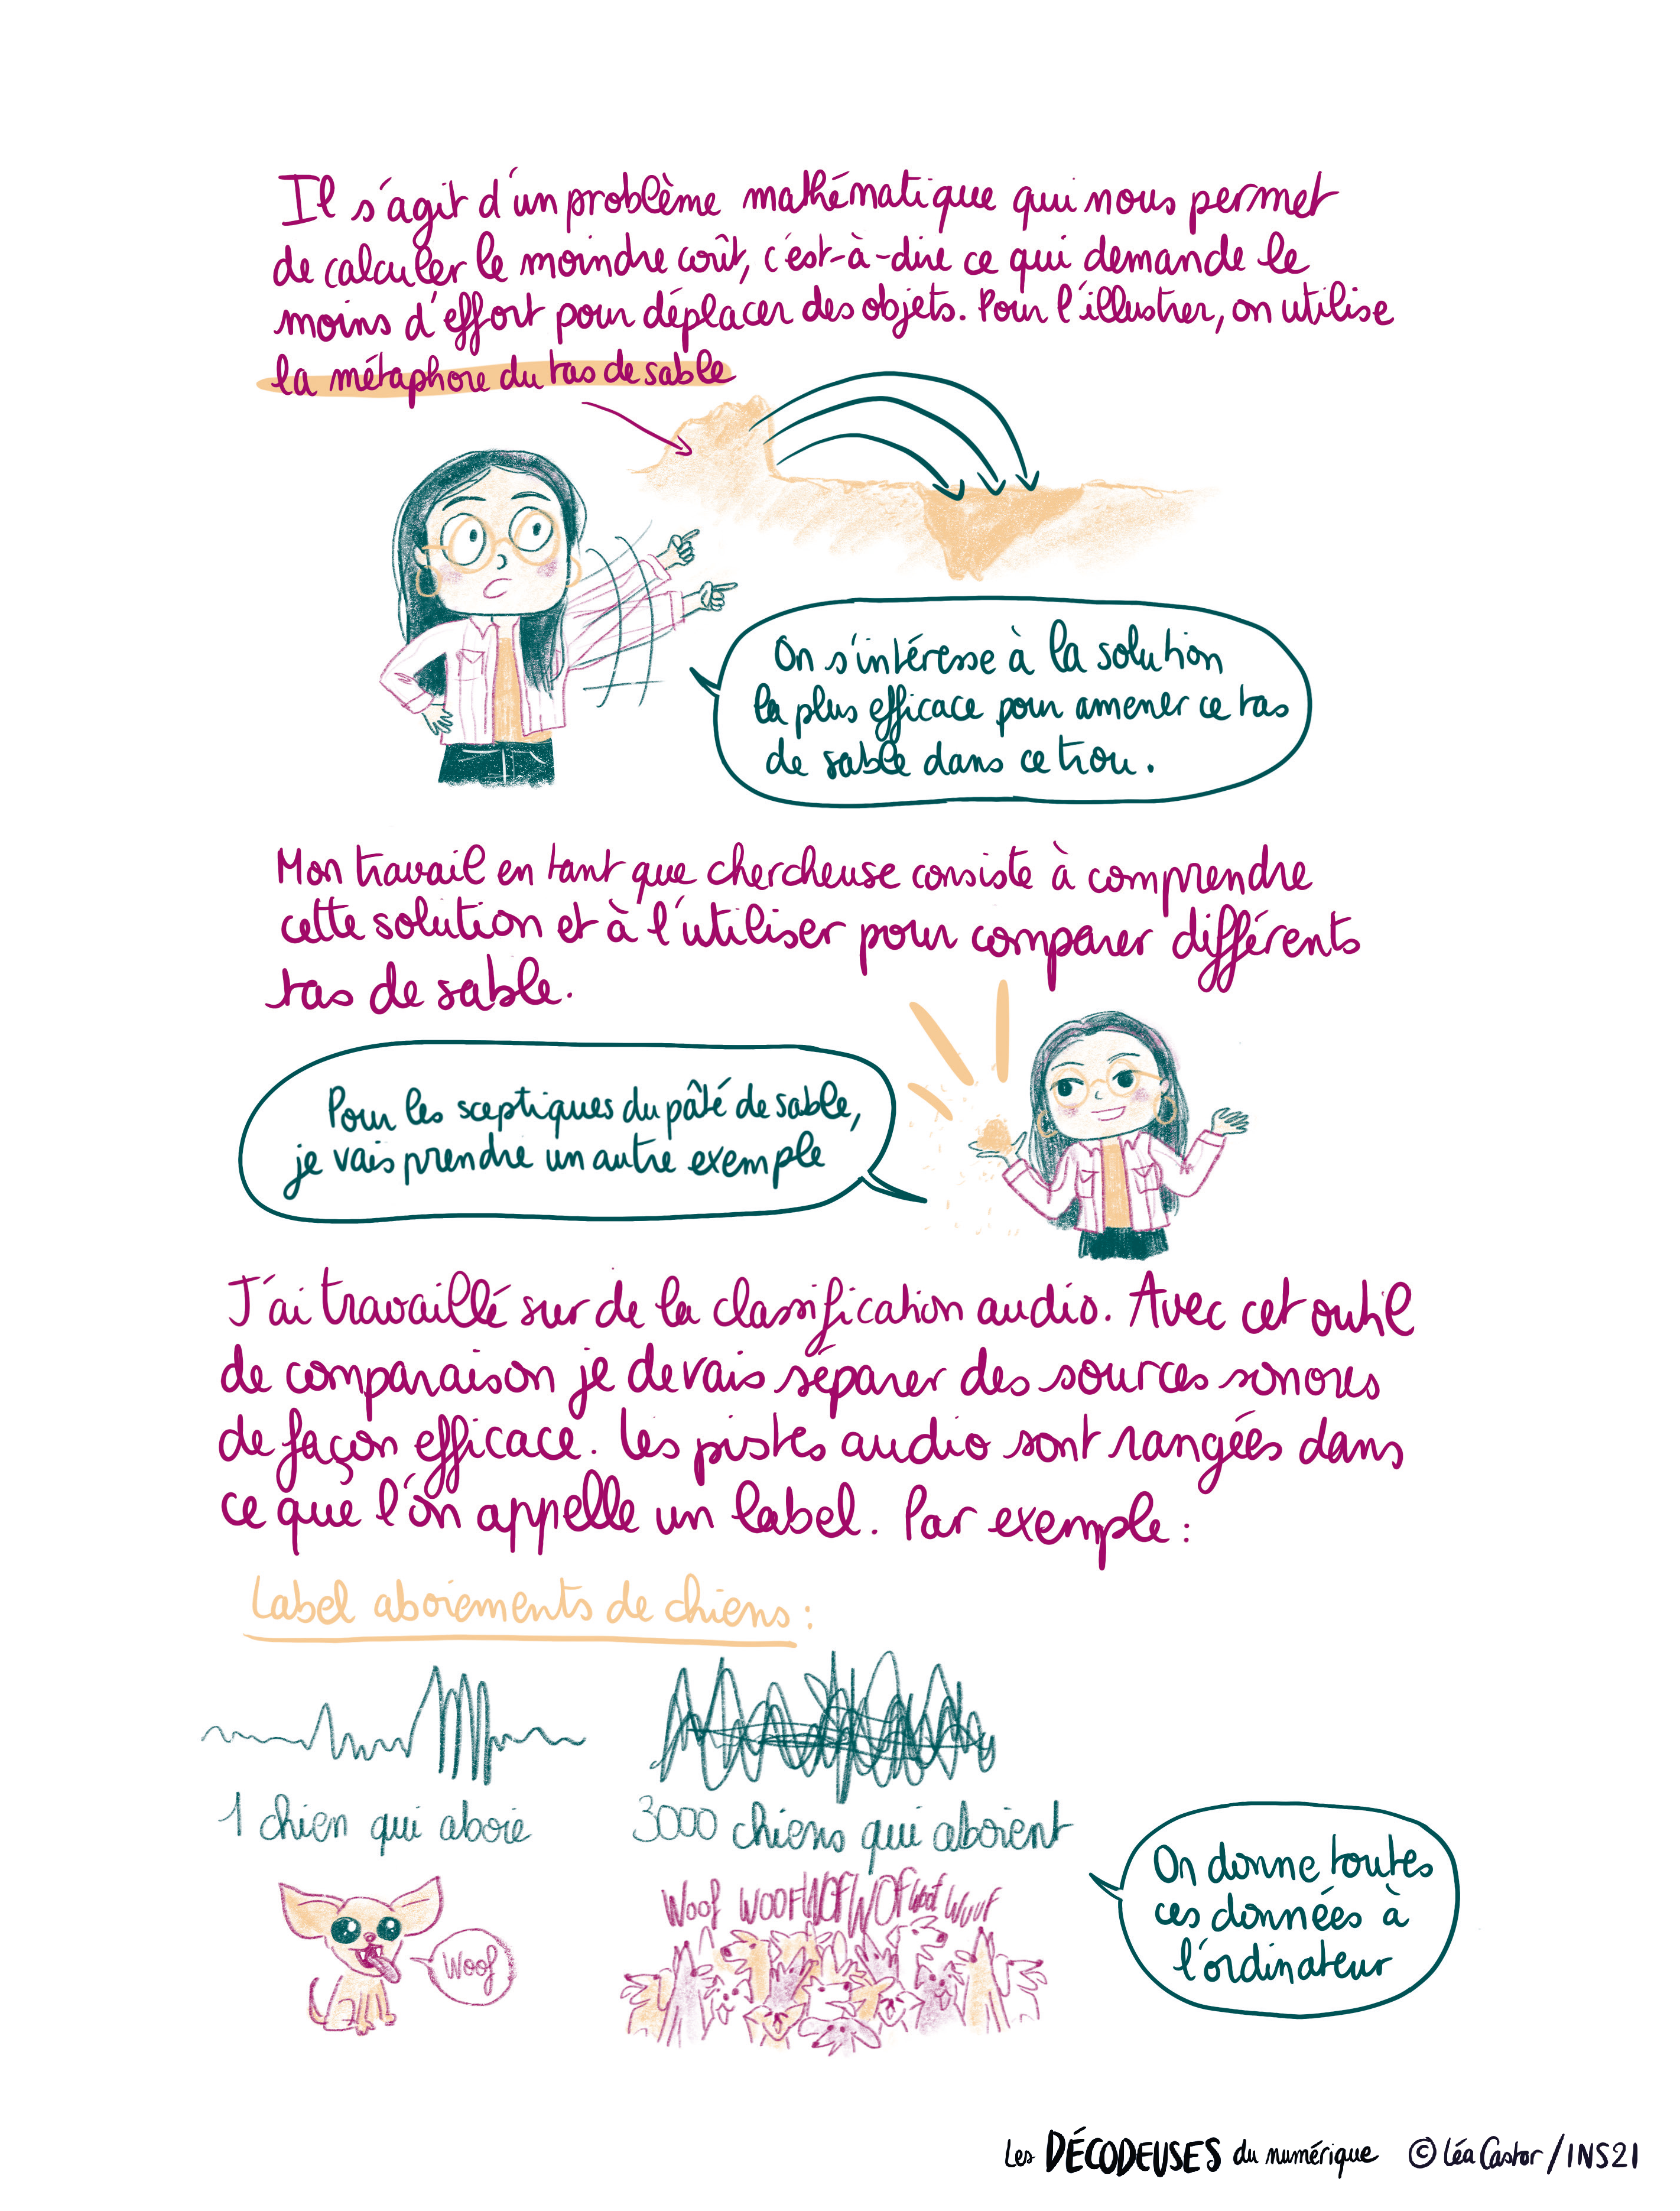 Il s'agit d'un problème mathématique qui nous permet
de calculer le moindre coût, c'est-à-dire ce qui demande le
moins d'effort pour déplacer des objets. Pour l'illustrer, on utilise
la métaphore du tas de sable
On s'intéresse à la solution
la plus efficace pour amener ce tas
de sable dans ce trou.
Mon travail en tant que chercheuse consiste à comprendre
cette solution et à l'utiliser pour comparer différents
tas de sable.
Pour les sceptiques du pâté de sable,
je vais prendre un autre exemple
J'ai travaillé sur de la classification audio. Avec cet outil
de comparaison je devais séparer des sources sonores
de façon efficace. Les pistes audio sont rangées dans
ce que l'on appelle un label. Par exemple :
Label aboiements de chiens :
1 chien qui aboie
3000 chiens qui aboient
Woof
Woof WOOF WOF WOF Woof Wouf
On donne toutes
ces données à
l'ordinateur
Les DÉCODEUSES du numérique © Léa Castor / INS2I